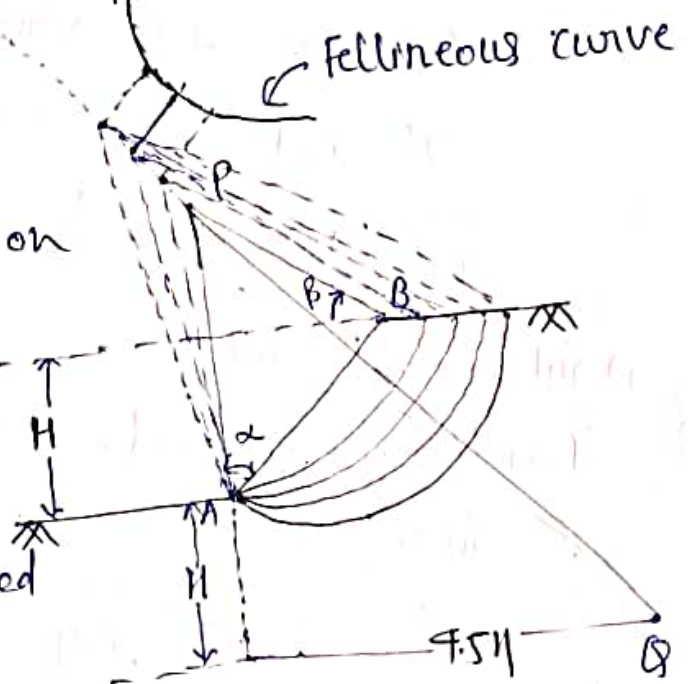 Fellineous curve
P
on
β
B
H
α
A
ed
H
4.5H
Q